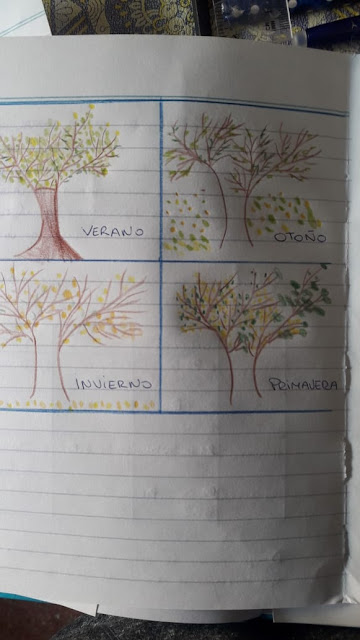 VERANO
OTOÑO
INVIERNO
PRIMAVERA